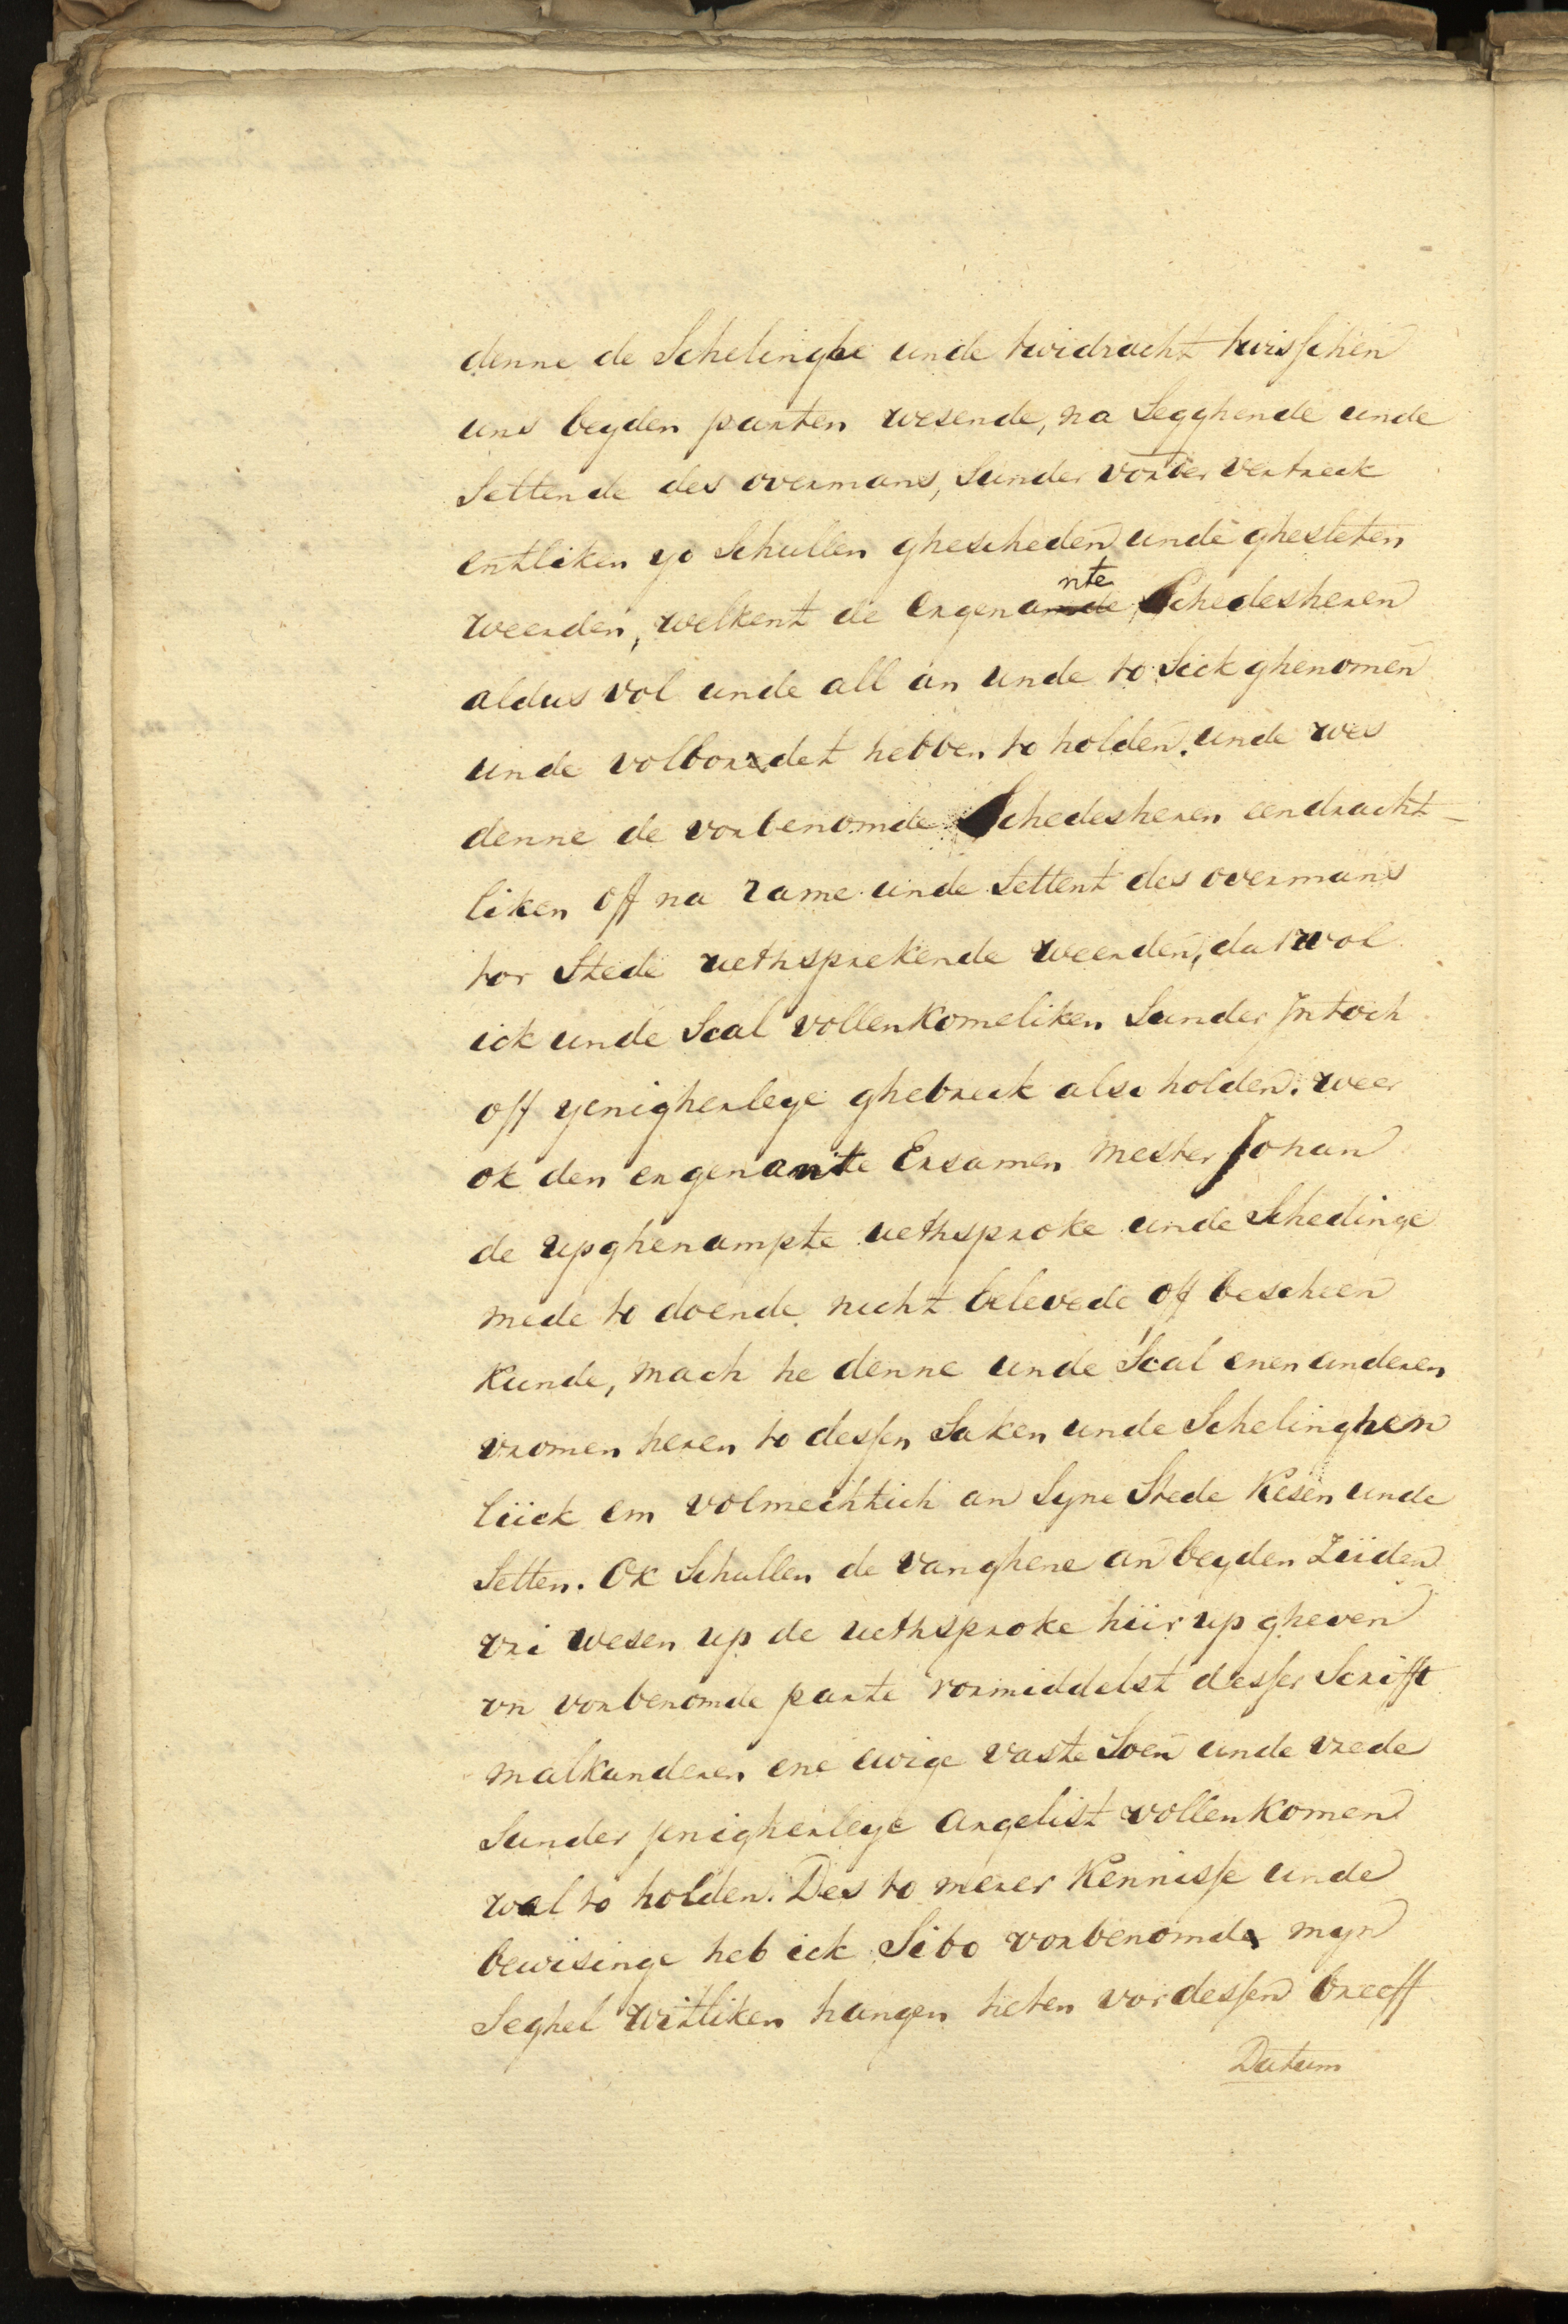 denne de Schelinghe unde twidracht twisschen
uns beyden parten wesende, na Segghende unde
Settende des overmans, Sunder vorder vertreck
entliken yo Schullen ghescheden unde ghesleten
weerden, welkent de ergenamnte Schedesheren
aldus vol unde all an unde to Sick ghenomen
unde volbordet hebben to holden. unde wes
denne de vorbenomde Schedesheren eendracht-
liken off na rame unde Settent des overmans
tor Stede uethsprekende weerden, dat wol
ick unde Scal vollenkomeliken Sunder Intoch
off yenigherleye ghebreck also holden. weer
ok den ergenante Ersamen mester Johan
de upghenampte uethsproke unde Schedinge
mede to doende nicht belevede off bescheen
Kunde, mach he denne unde Scal enen anderen
vromen heren to dessen Saken unde Schelinghen
liick em volmechtich an Syne Stede Kesen unde
Setten. Ok Schullen de vanghene an beyden Ziiden
vri wesen up de uethsproke hiir up gheven
vn vorbenomde parte vormiddelst desser Scrifft
malkanderen ene ewige vaste Soen unde vrede
Sunder jenigherleye argelist vollenkomen
wal to holden. Des to merer Kennisse unde
bewisinge heb ick Sibo vorbenomde myn
Seghel witliken hangen heten vor dessen breeff
Datum